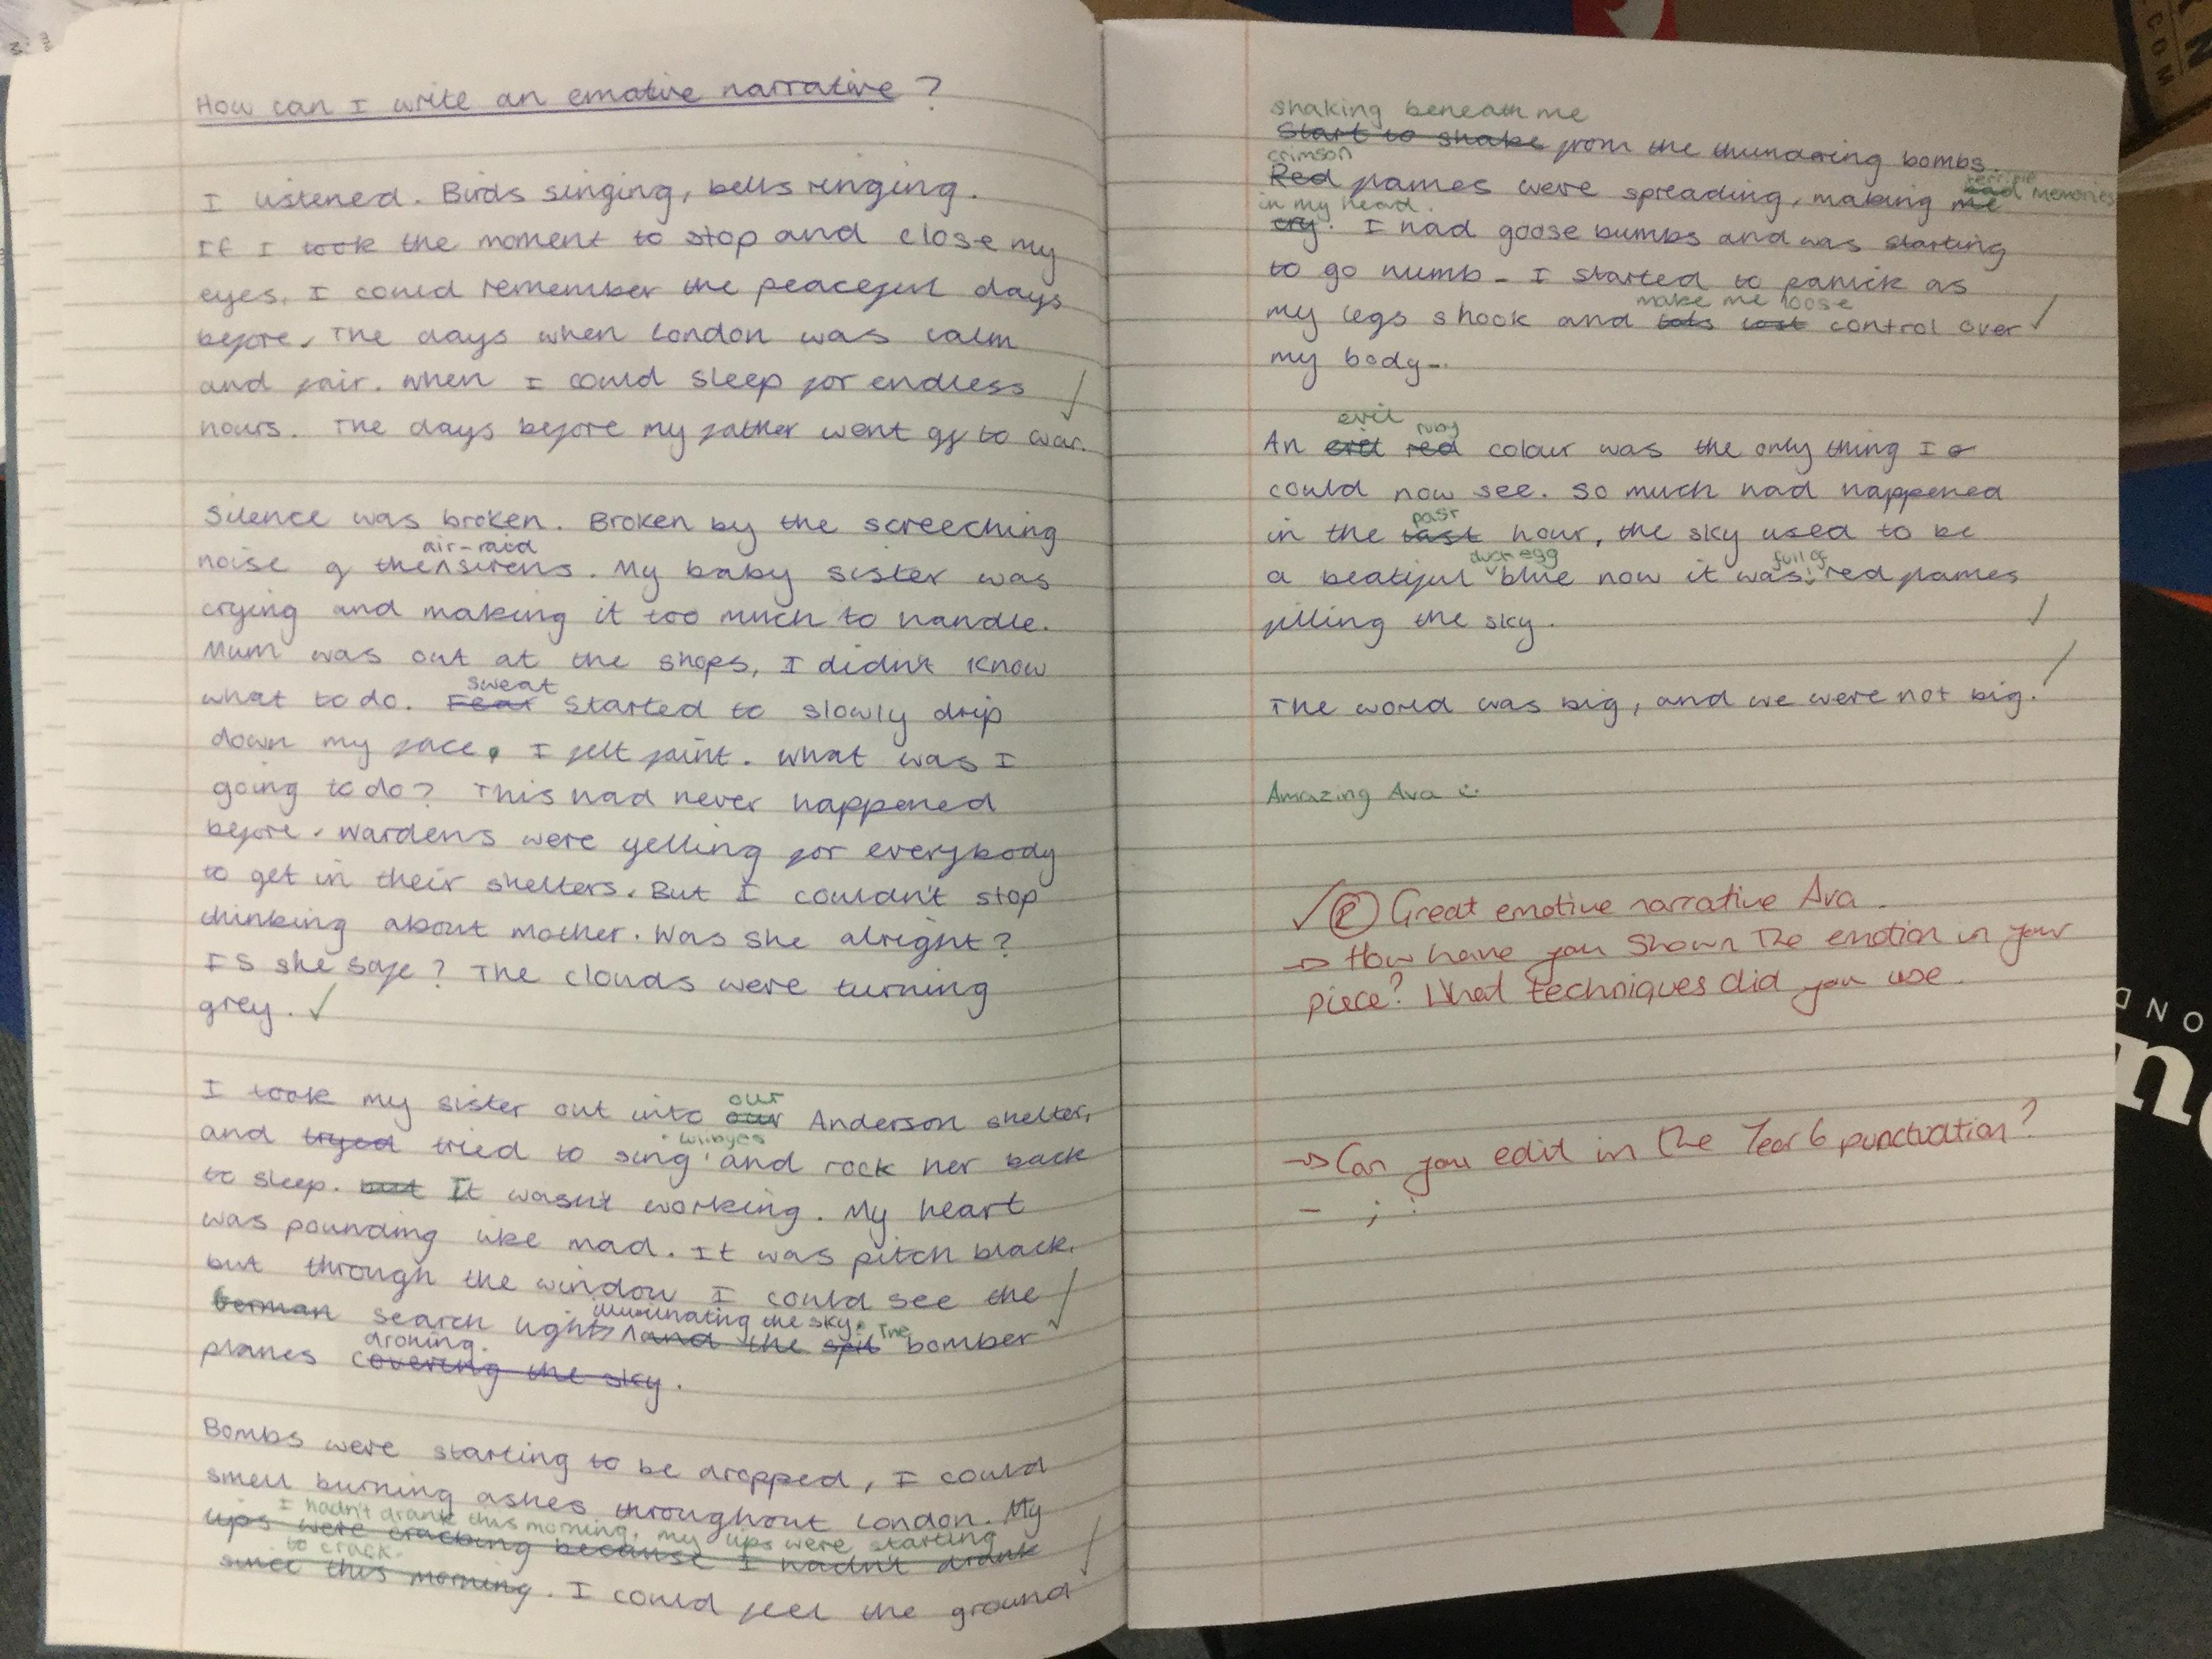 How can I write an emotive narrative?
I listened. Birds singing, bells ringing.
If I took the moment to stop and close my
eyes, I could remember the peaceful days
before. The days when London was calm
and fair. When I could sleep for endless
hours. The days before my father went off to war.
Silence was broken. Broken by the screeching
air-raid
noise of the sirens. My baby sister was
crying and making it too much to handle.
Mum was out at the shops, I didn't know
sweat
what to do. Fear started to slowly drip
down my face, I felt faint. What was I
going to do? This had never happened
before. Wardens were yelling for everybody
to get in their shelters. But I couldn't stop
thinking about mother. Was she alright?
Is she safe? The clouds were turning
grey.
our
I took my sister out into our Anderson shelter,
lullbyes
and tryed tried to sing and rock her back
to sleep. but It wasn't working. My heart
was pounding like mad. It was pitch black,
but through the window I could see the
illuminating the sky. The
German search lights and the spit bomber
droning.
planes covering the sky.
Bombs were starting to be dropped, I could
smell burning ashes throughout London. My
I hadn't drank this morning, my lips were starting
lips were cracking because I hadn't drank
to crack.
since this morning. I could feel the ground
shaking beneath me
Start to shake from the thundering bombs.
crimson
terrible
Red flames were spreading, making me bad memories
in my head.
cry. I had goose bumbs and was starting
to go numb - I started to panick as
make me loose
my legs shook and lost control over
my body...
evil ruby
An evil red colour was the only thing I
could now see. So much had happened
past
in the last hour, the sky used to be
duck egg full of
a beatiful blue now it was red flames
filling the sky.
The world was big, and we were not big.
Amazing Ava
Great emotive narrative Ava.
→ How have you shown the emotion in your
piece? What techniques did you use.
→ Can you edit in the Year 6 punctuation?
- ; :
N
COM
OND
n